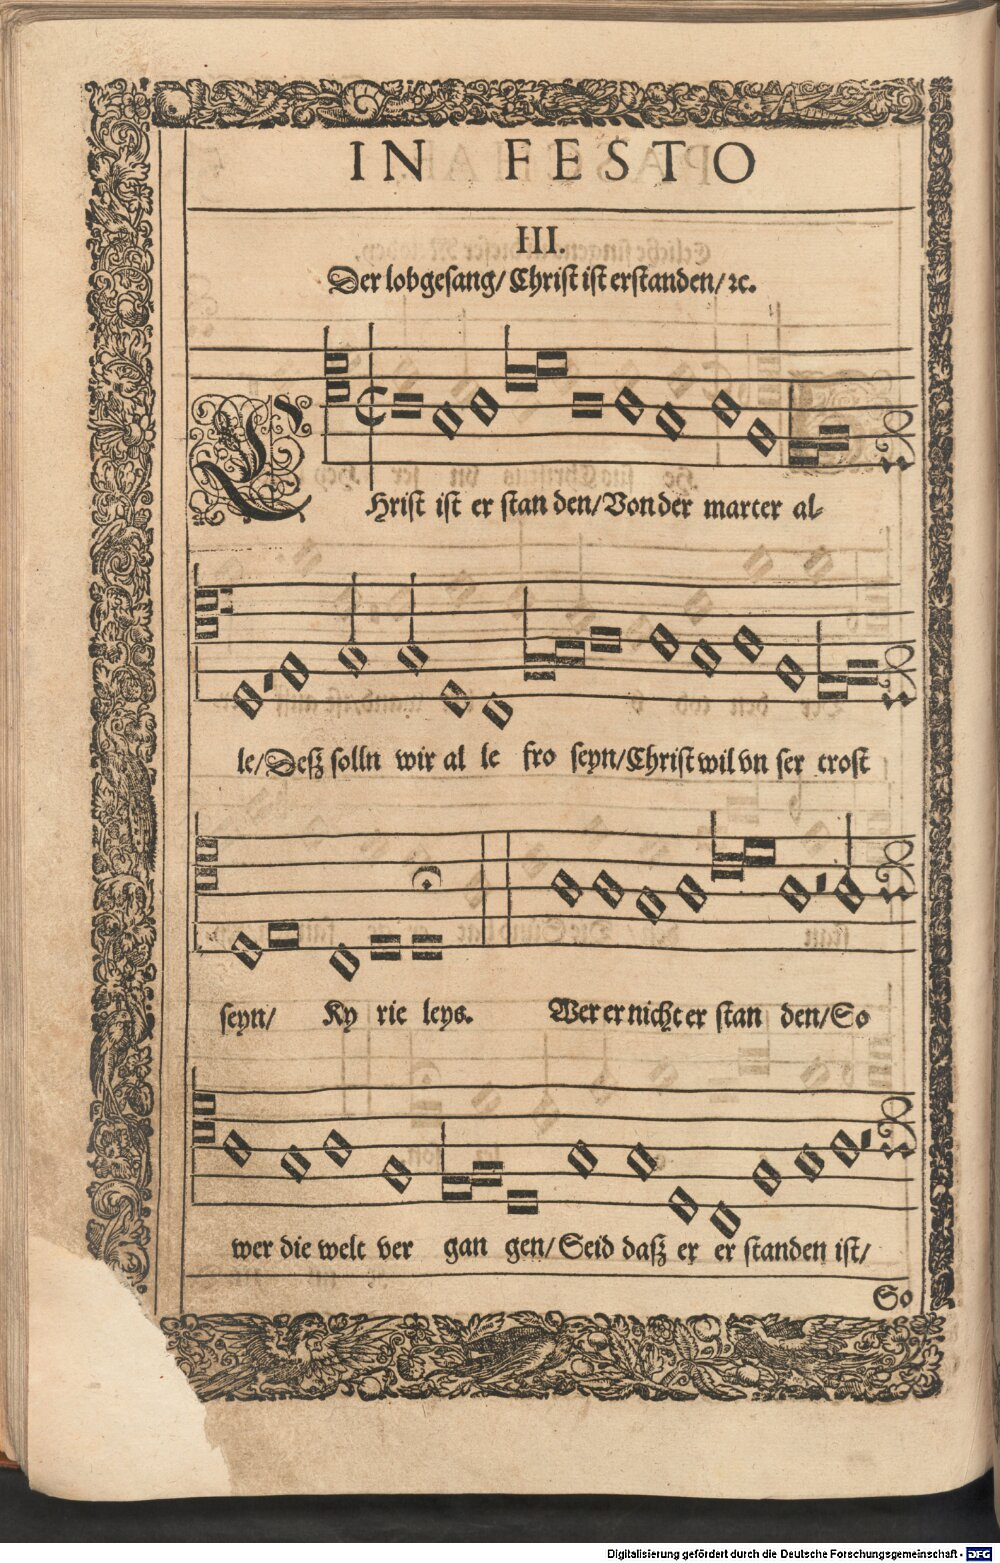 IN FESTO
III.
Der lobgesang/ Christ ist erstanden/ ꝛc.
CHrist ist er stan den/ Von der marter al-
le/ Desz solln wir al le fro seyn/ Christ wil vn ser trost
seyn/ Ky rie leys. Wer er nicht er stan den/ So
wer die welt ver gan gen/ Seid dasz er er standen ist/
So
Digitalisierung gefördert durch die Deutsche Forschungsgemeinschaft - DFG